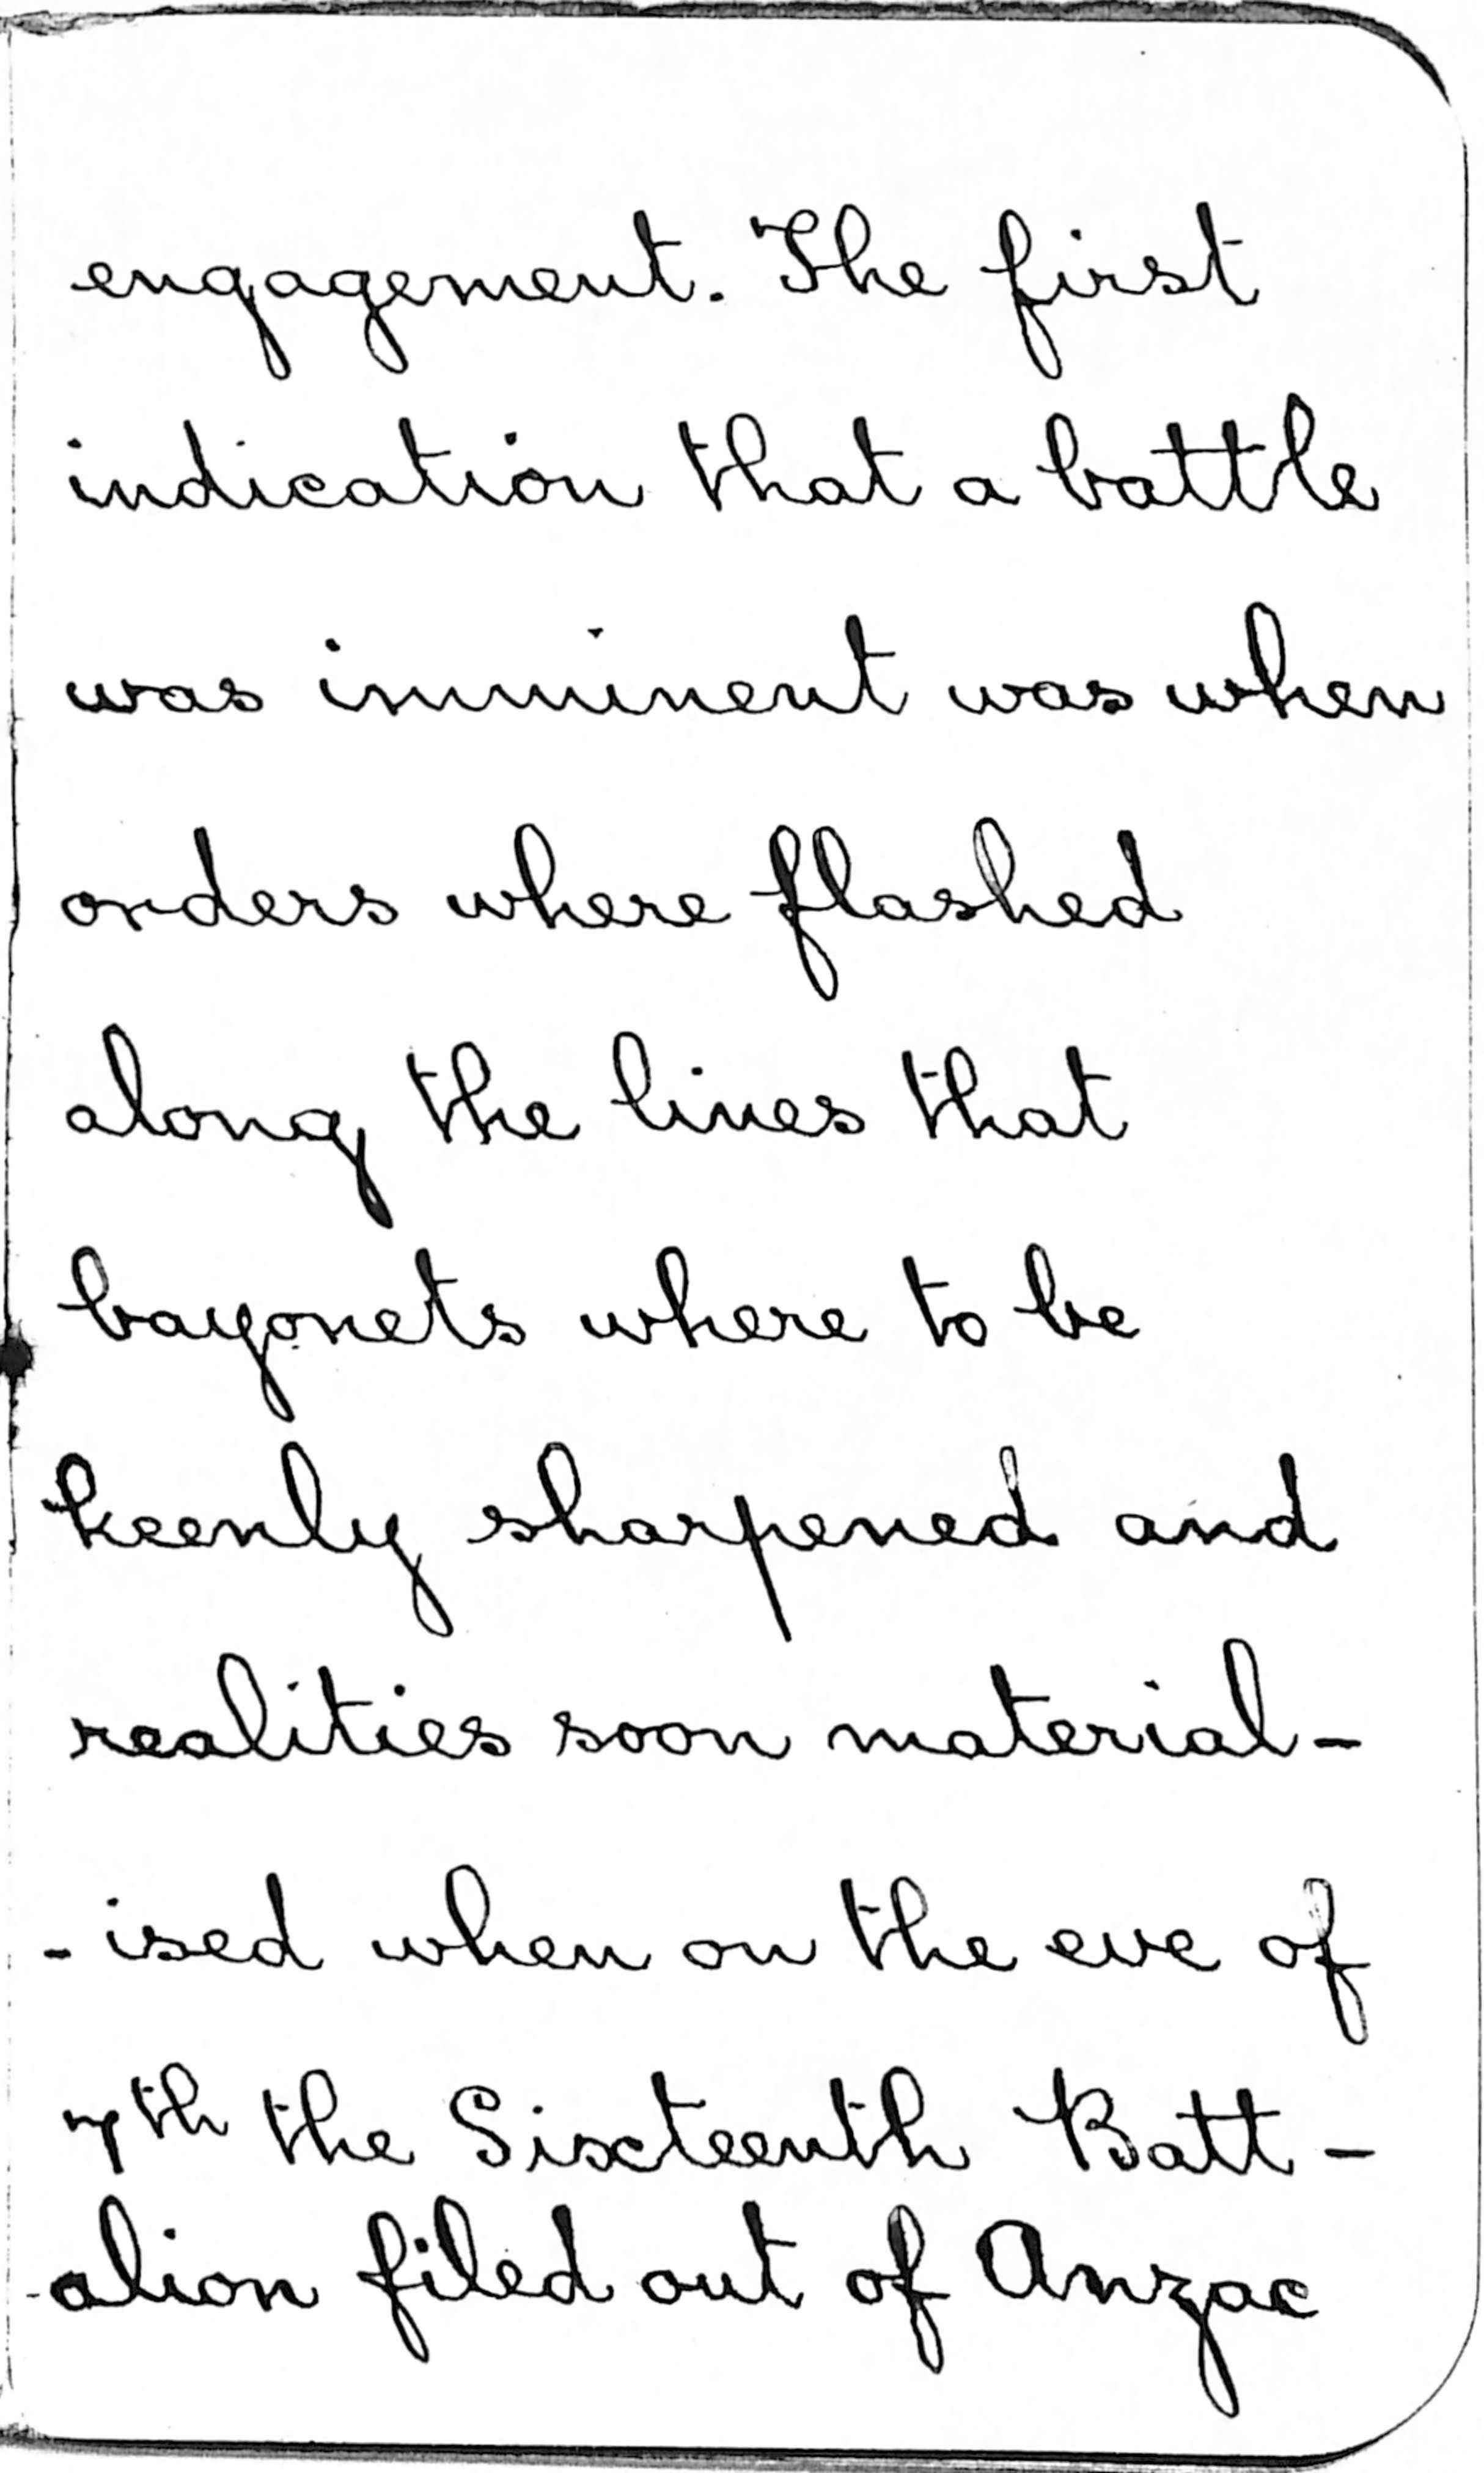 engagement. The first
indication that a battle
was imminent was when
orders where flashed
along the lines that
bayonets where to be
keenly sharpened and
realities soon material-
- ised when on the eve of
7th the Sixteenth Batt-
-alion filed out of Anzac